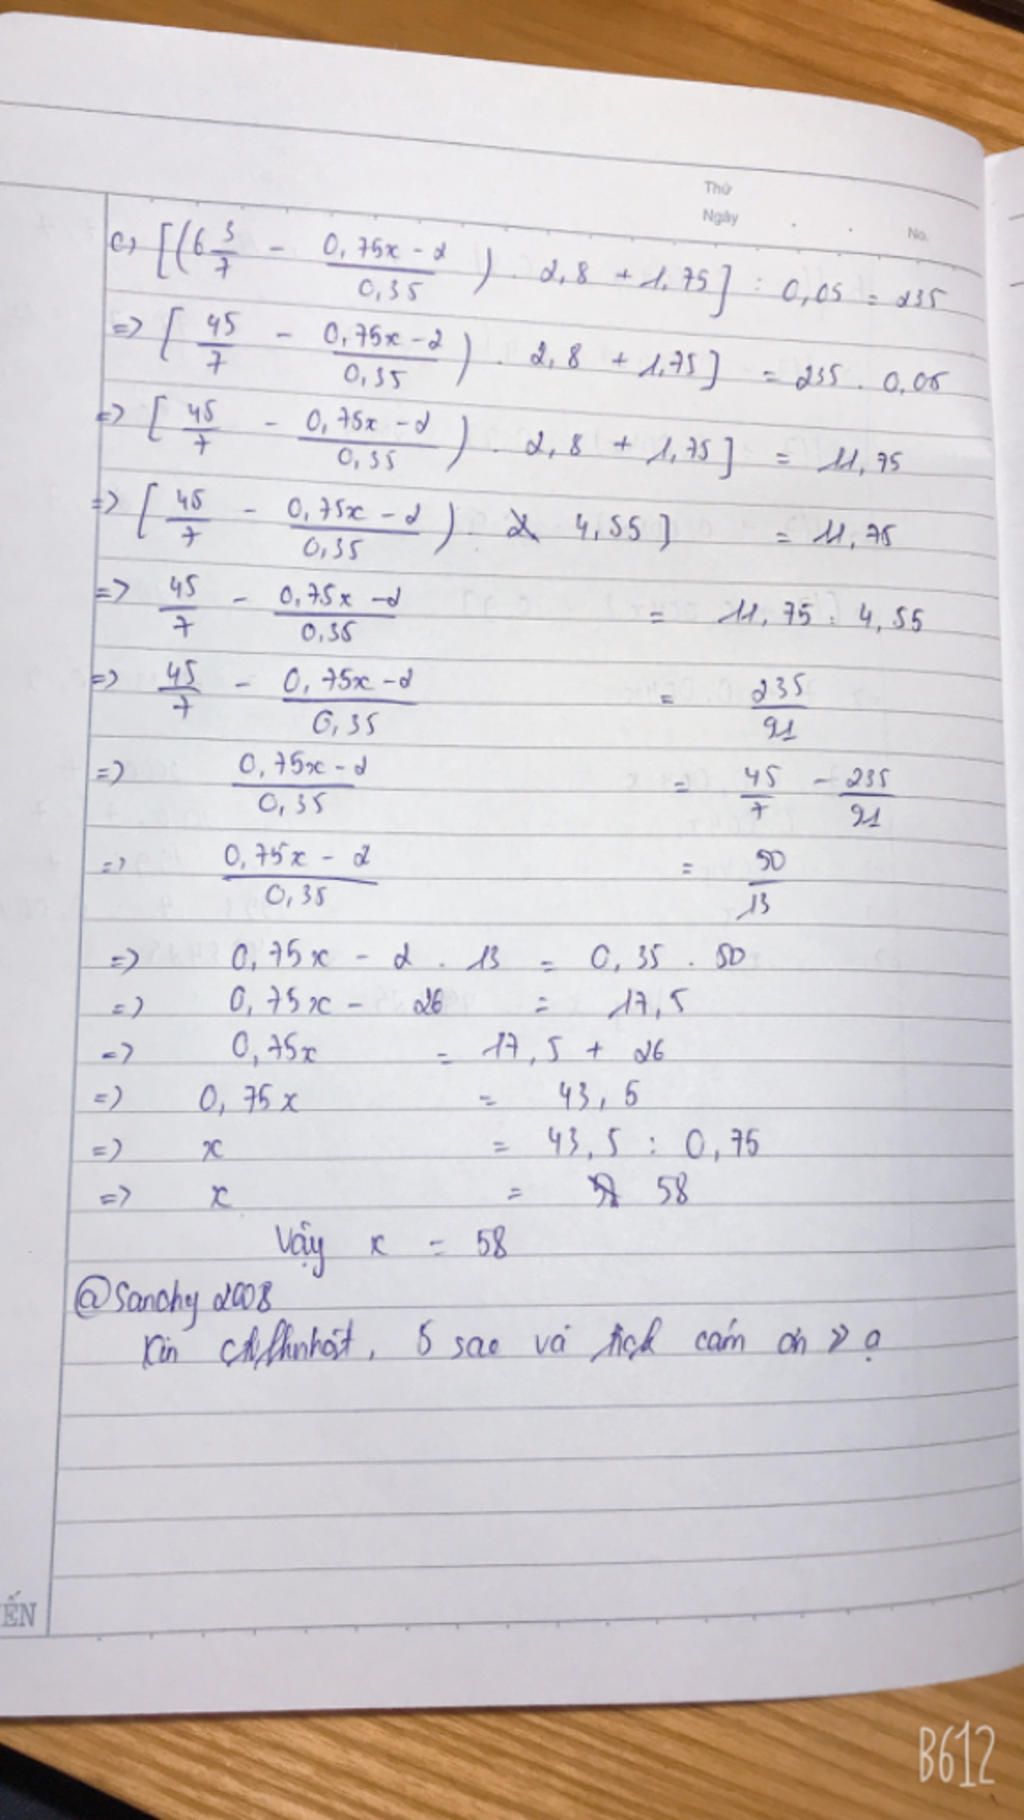 Thứ
Ngày
No.
c) [(6 3/7 - (0,75x - 2)/0,35) . 2,8 + 1,75] : 0,05 = 235
=> [45/7 - (0,75x - 2)/0,35) . 2,8 + 1,75] = 235 . 0,05
=> [45/7 - (0,75x - 2)/0,35) . 2,8 + 1,75] = 11,75
=> [45/7 - (0,75x - 2)/0,35) . 4,55] = 11,75
=> 45/7 - (0,75x - 2)/0,35 = 11,75 : 4,55
=> 45/7 - (0,75x - 2)/0,35 = 235/91
=> (0,75x - 2)/0,35 = 45/7 - 235/91
=> (0,75x - 2)/0,35 = 50/13
=> 0,75x - 2 . 13 = 0,35 . 50
=> 0,75x - 26 = 17,5
=> 0,75x = 17,5 + 26
=> 0,75x = 43,5
=> x = 43,5 : 0,75
=> x = 58
Vậy x = 58
@Sanchy 2008
Xin nhất, 5 sao và tick cám ơn ạ
ẾN
B612